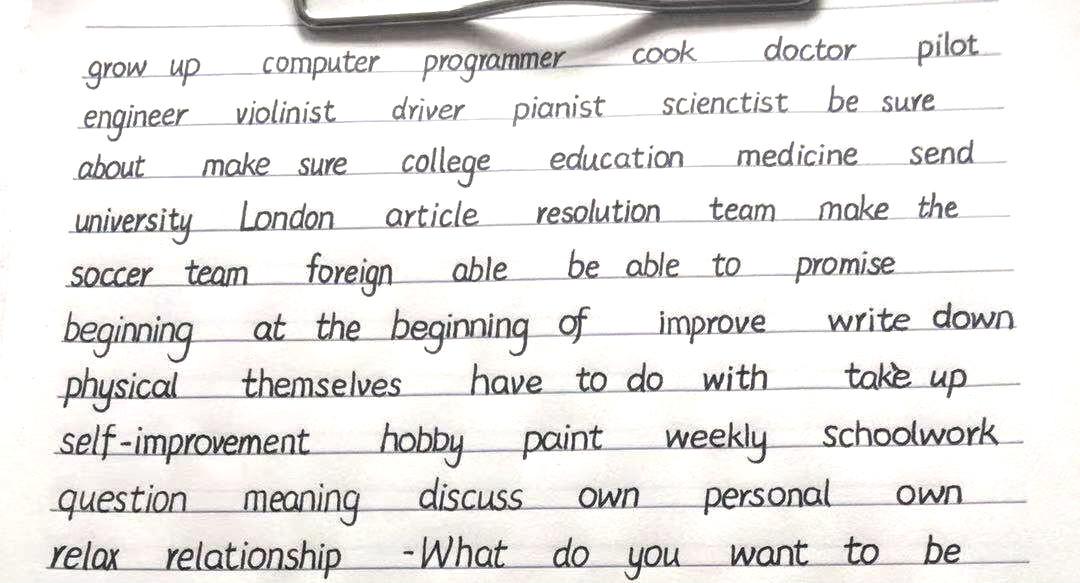 grow up computer programmer cook doctor pilot
engineer violinist driver pianist scienctist be sure
about make sure college education medicine send
university London article resolution team make the
soccer team foreign able be able to promise
beginning at the beginning of improve write down
physical themselves have to do with take up
self-improvement hobby paint weekly schoolwork
question meaning discuss own personal own
relax relationship -What do you want to be